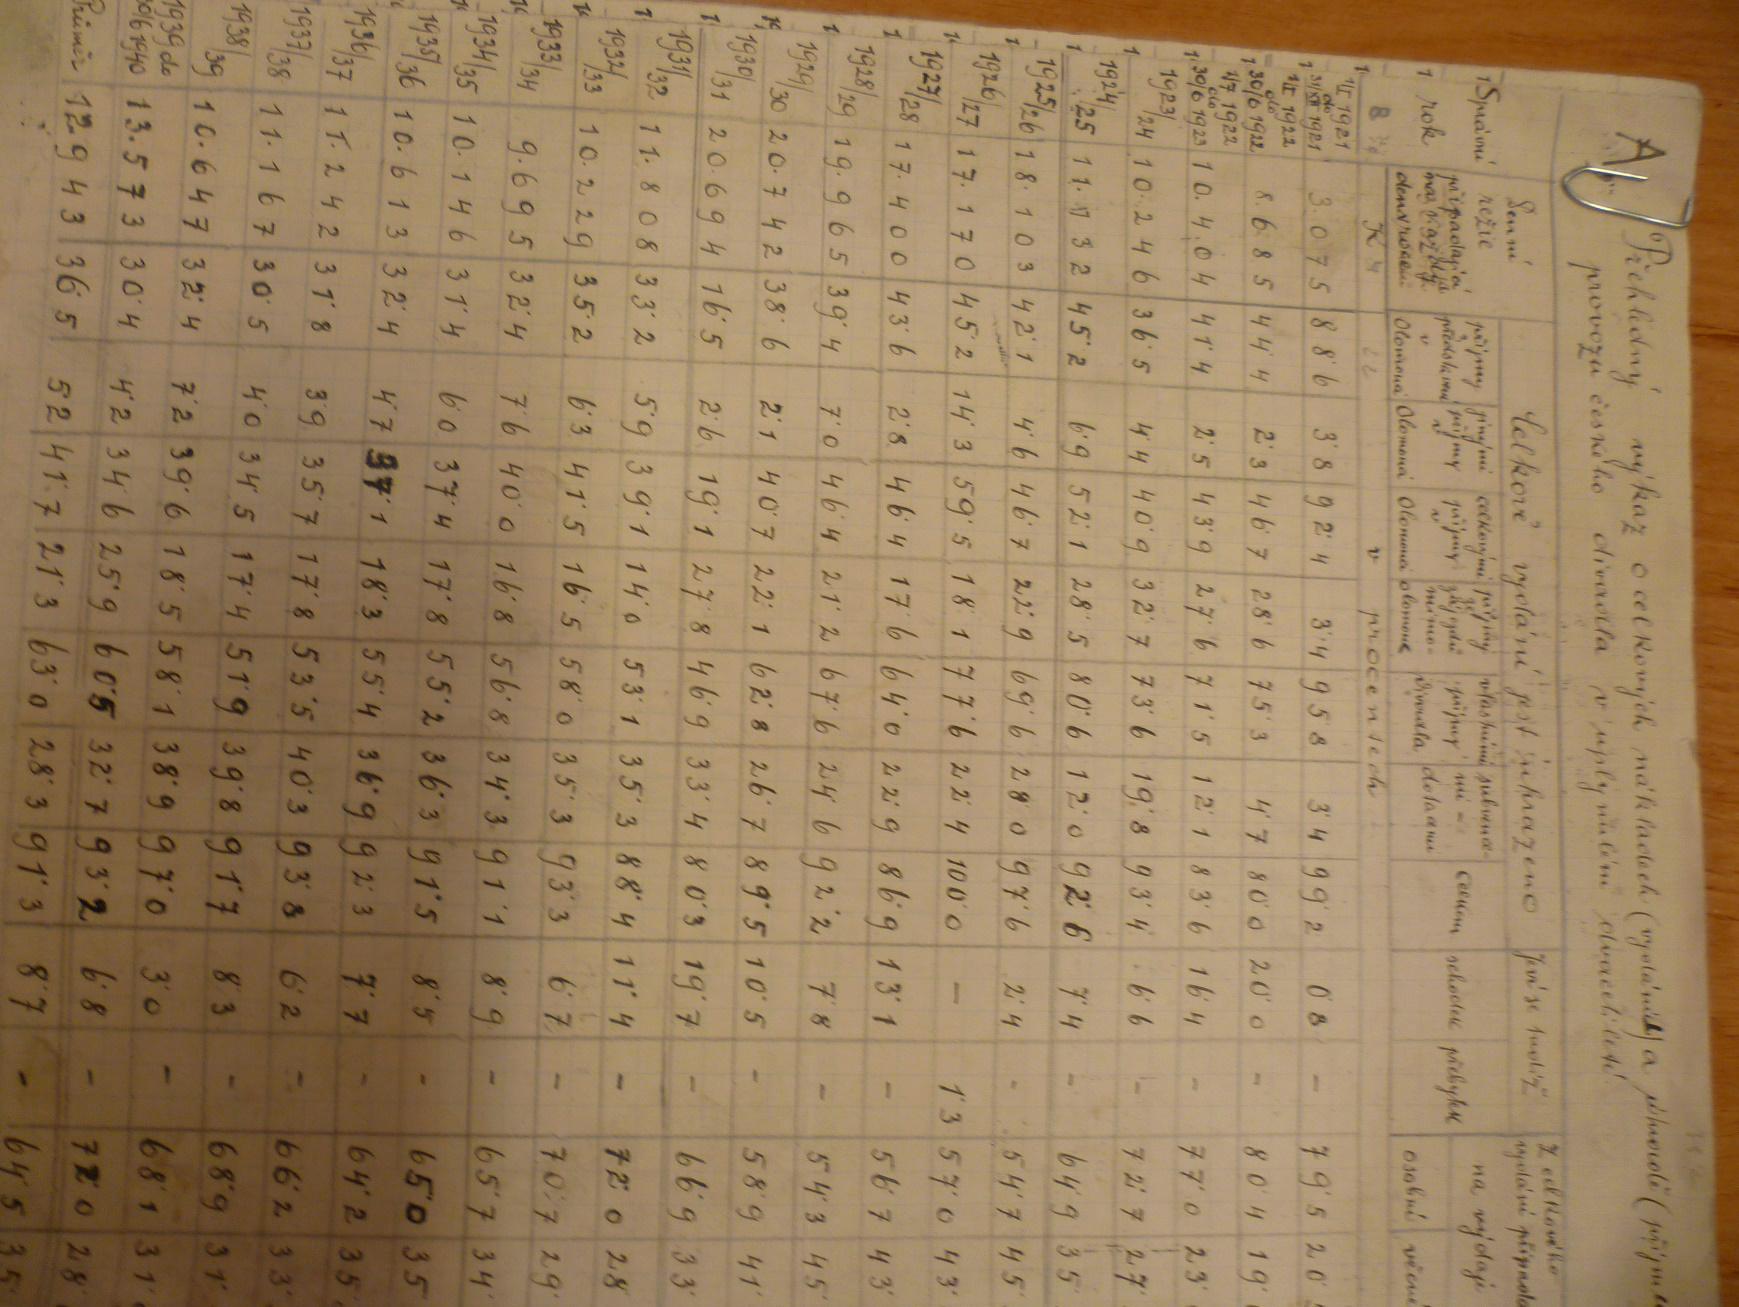 A. Přehledný výkaz o celkových nákladech (vydáních) a původě (příjmů
provozu českého divadla v uplynulém dvacetiletí.
Správní rok
Denní režie připadající na každý den v roce
Celkové vydání jest uhrazeno
příjmy předplatné v Olomouci
jinými příjmy v Olomouci
celkovými příjmy v Olomouci
příjmy ze zájezdů mimo Olomouc
vlastními příjmy divadla
subvencemi - dotacemi
celkem
Jeví se tudíž
schodek
přebytek
Z celkového vydání připadá
na výdaje
osobní
věcné
Kč
v procentech
1/II 1921 do 31/XII 1921 3.075 88·6 3·8 92·4 3·4 95·8 3·4 99·2 0·8 - 79·5 20·
1/I 1922 do 30/6 1922 8.685 44·4 2·3 46·7 28·6 75·3 4·7 80·0 20·0 - 80·4 19·
1/7 1922 do 30/6 1923 10.404 41·4 2·5 43·9 27·6 71·5 12·1 83·6 16·4 - 77·0 23·
1923/24 10.246 36·5 4·4 40·9 32·7 73·6 19·8 93·4 6·6 - 72·7 27·
1924/25 11.132 45·2 6·9 52·1 28·5 80·6 12·0 92·6 7·4 - 64·9 35·
1925/26 18.103 42·1 4·6 46·7 22·9 69·6 28·0 97·6 2·4 - 54·7 45·
1926/27 17.170 45·2 14·3 59·5 18·1 77·6 22·4 100·0 - 1·3 57·0 43·
1927/28 17.400 43·6 2·8 46·4 17·6 64·0 22·9 86·9 13·1 - 56·7 43·
1928/29 19.965 39·4 7·0 46·4 21·2 67·6 24·6 92·2 7·8 - 54·3 45·
1929/30 20.742 38·6 2·1 40·7 22·1 62·8 26·7 89·5 10·5 - 58·9 41·
1930/31 20.694 16·5 2·6 19·1 27·8 46·9 33·4 80·3 19·7 - 66·9 33·
1931/32 11.808 33·2 5·9 39·1 14·0 53·1 35·3 88·4 11·4 - 72·0 28·
1932/33 10.229 35·2 6·3 41·5 16·5 58·0 35·3 93·3 6·7 - 70·7 29·
1933/34 9.695 32·4 7·6 40·0 16·8 56·8 34·3 91·1 8·9 - 65·7 34·
1934/35 10.146 31·4 6·0 37·4 17·8 55·2 36·3 91·5 8·5 - 65·0 35·
1935/36 10.613 32·4 4·7 37·1 18·3 55·4 36·9 92·3 7·7 - 64·2 35·
1936/37 11.242 31·8 3·9 35·7 17·8 53·5 40·3 93·8 6·2 - 66·2 33·
1937/38 11.167 30·5 4·0 34·5 17·4 51·9 39·8 91·7 8·3 - 68·9 31·
1938/39 10.647 32·4 7·2 39·6 18·5 58·1 38·9 97·0 3·0 - 68·1 31·
1939 do 30/6 1940 13.573 30·4 4·2 34·6 25·9 60·5 32·7 93·2 6·8 - 72·0 28·
Průměr 12.943 36·5 5·2 41·7 21·3 63·0 28·3 91·3 8·7 - 64·5 35·